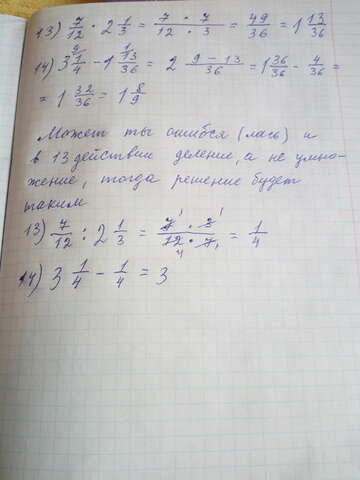 13) 7/12 · 2 1/3 = 7 · 7 / 12 · 3 = 49/36 = 1 13/36
14) 3 9/1/4 - 1 1/13/36 = 2 9 - 13 / 36 = 1 36/36 - 4/36 =
= 1 32/36 = 1 8/9
Может ты ошибся (лась) и
в 13 действии деление, а не умно-
жение, тогда решение будет
таким
13) 7/12 : 2 1/3 = 7 1 · 3 1 / 12 4 · 7 1 = 1/4
14) 3 1/4 - 1/4 = 3